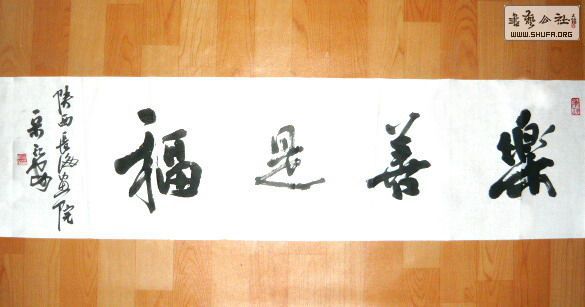 樂善是福
陕西長海画院
書藝公社
WWW.SHUFA.ORG